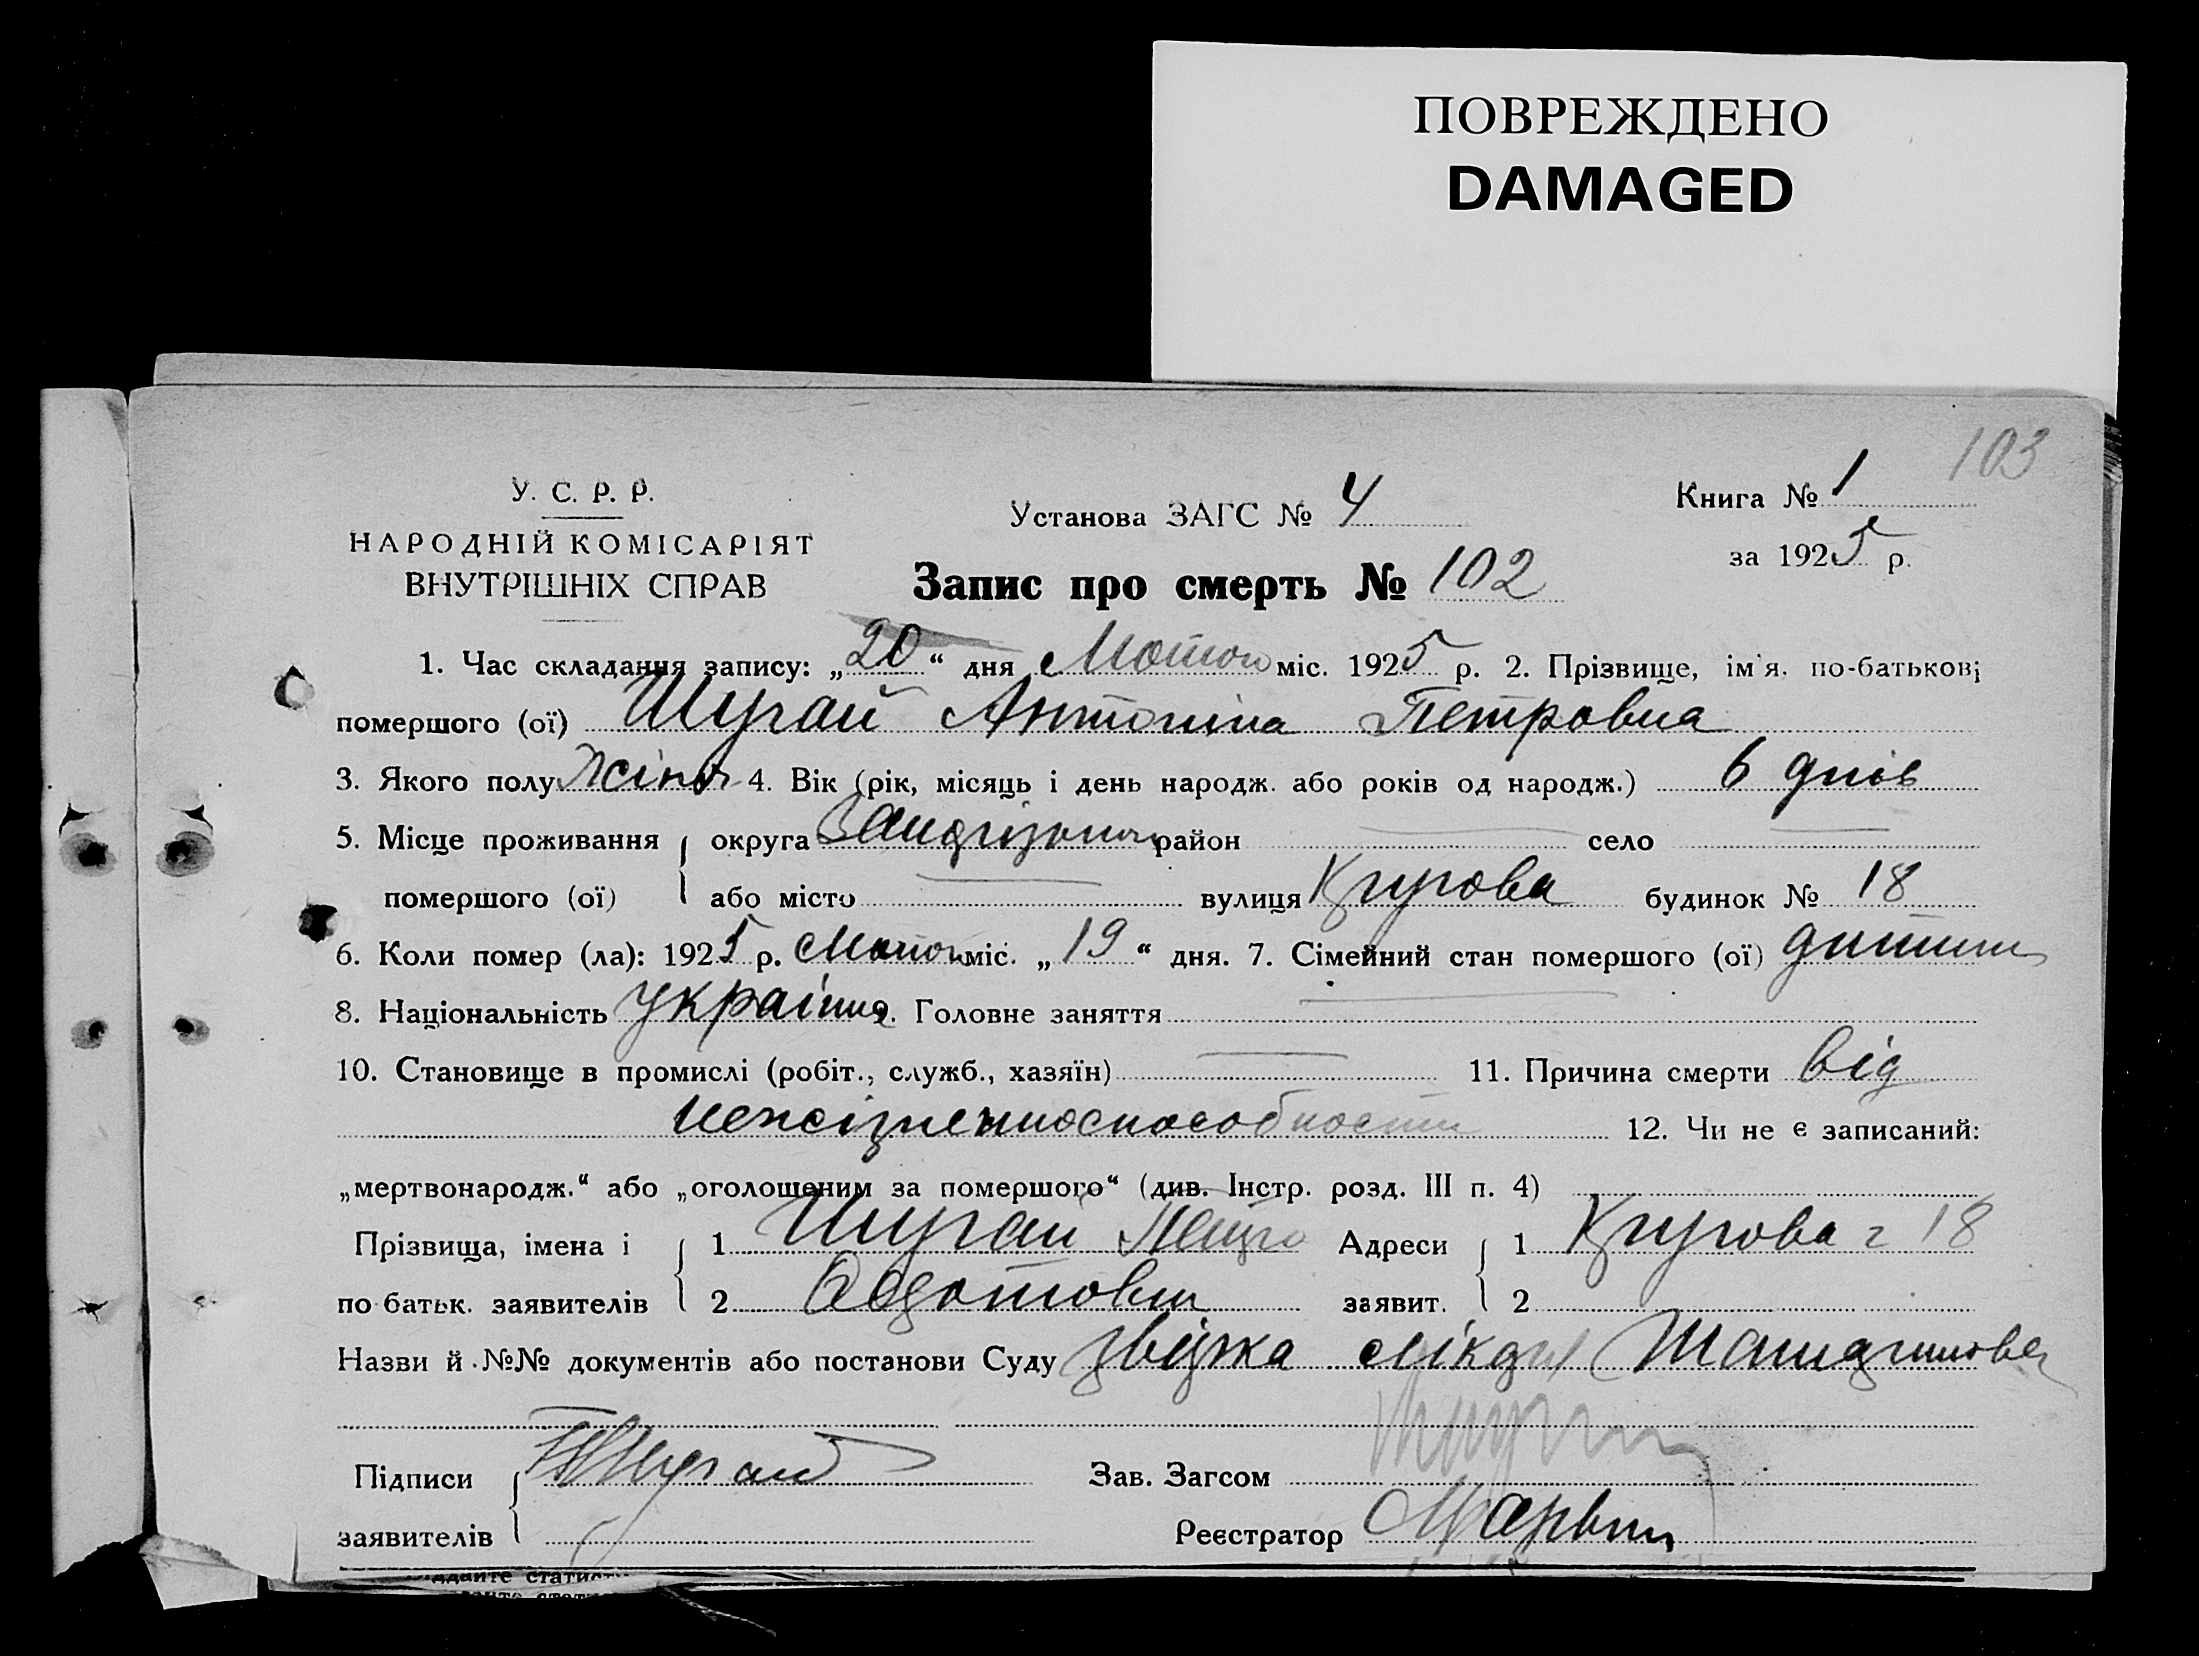 ПОВРЕЖДЕНО
DAMAGED
103
У. С. Р. Р.
НАРОДНІЙ КОМІСАРІЯТ
ВНУТРІШНІХ СПРАВ
Установа ЗАГС № 4
Книга № 1
за 1925 р.
Запис про смерть № 102
1. Час складання запису: „20“ дня міс. 1925 р. 2. Прізвище, ім'я. по-батькові
помершого (ої) Шугай Антоніна Петровна
3. Якого полу жіноч 4. Вік (рік, місяць і день народж. або років од народж.) 6 днів
5. Місце проживання округа район село
помершого (ої) або місто вулиця будинок № 18
6. Коли помер (ла): 1925 р. міс. „19“ дня. 7. Сімейний стан помершого (ої) дитина
8. Національність україн 9. Головне заняття
10. Становище в промислі (робіт., служб., хазяїн) 11. Причина смерти від
12. Чи не є записаний:
„мертвонародж.“ або „оголошеним за померщого“ (див. Інстр. розд. III п. 4)
Прізвища, імена і 1 Шугай Петро Адреси 1 18
по батьк. заявителів 2 заявит. 2
Назви й №№ документів або постанови Суду
Підписи Зав. Загсом
заявителів Реєстратор